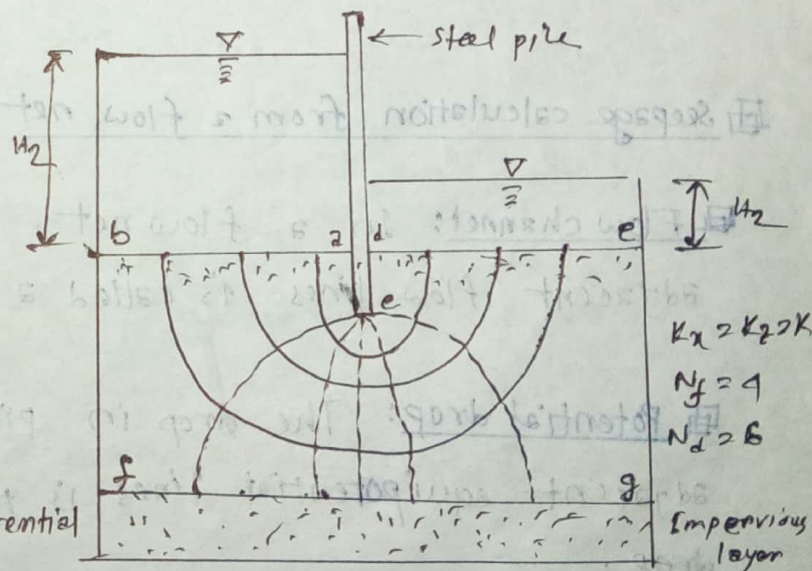 steel pile
H2
H2
b
a
d
e
e
Kx = Kz = K
Nf = 4
Nd = 6
f
g
rential
Impervious
layer